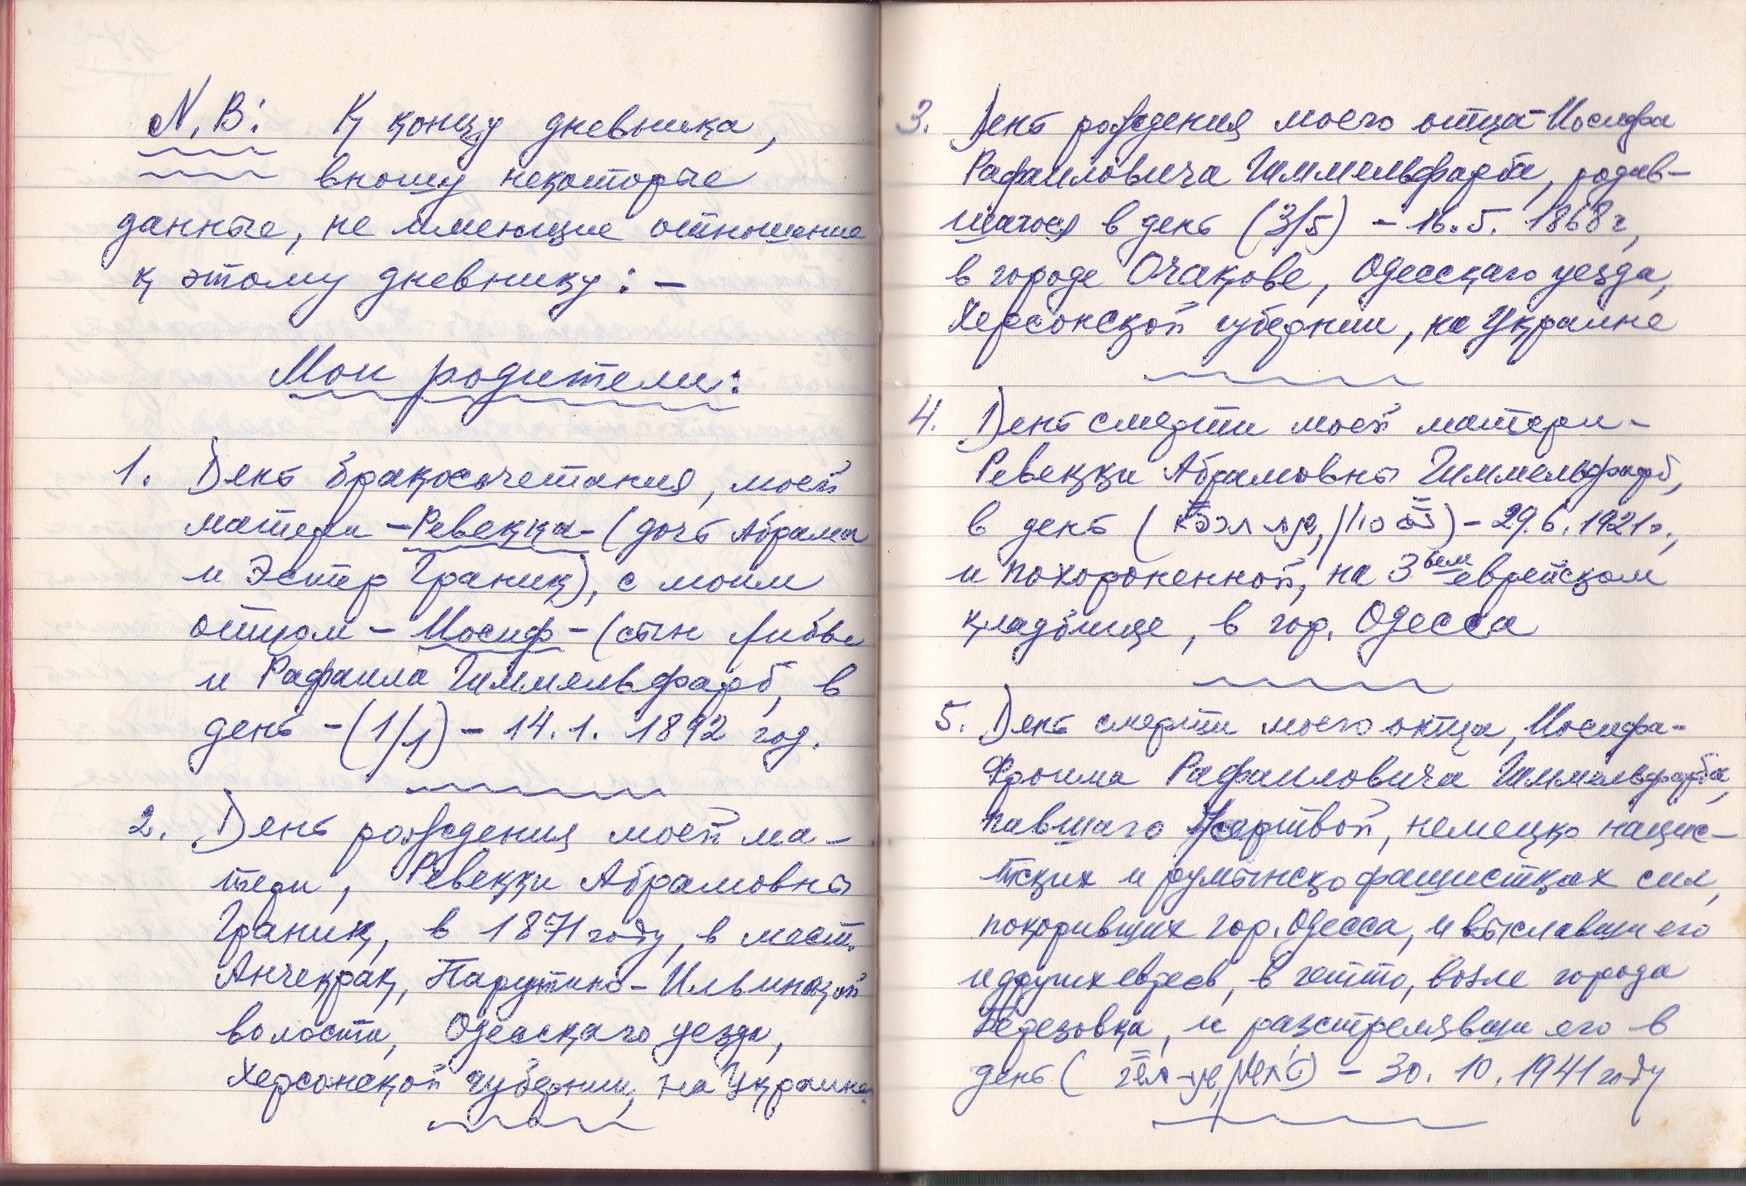 N. B: К концу дневника,
вношу некоторые
данные, не имеющие отношение
к этому дневнику: —
Мои родители:
1. День бракосочетания, моей
матери — Ревекка — (дочь Абрама
и Эстер Граник), с моим
отцом — Иосиф — (сын Либбе
и Рафаила Гиммельфарб, в
день — (1/1) — 14. 1. 1892 год.
2. День рождения моей ма-
тери, Ревекки Абрамовны
Граник, в 1871 году, в мест.
Анчекрак, Парутино-Ильинской
волости, Одесскаго уезда,
Херсонской губернии, на Украине
3. День рождения моего отца — Иосифа
Рафаиловича Гиммельфарба, родив-
шагося в день (3/5) — 16. 5. 1868 г,
в городе Очакове, Одесскаго уезда,
Херсонской губернии, на Украине
4. День смерти моей матери —
Ревекки Абрамовны Гиммельфарб,
в день ( ) — 29. 6. 1921 г.,
и похороненной, на 3ьем еврейском
кладбище, в гор. Одесса
5. День смерти моего отца, Иосифа-
Фроима Рафаиловича Гиммельфарба,
павшаго жертвой, немецко нацис-
тских и румынско фашистках сил,
покоривших гор. Одесса, и выславши его
и других евреев, в гетто, возле города
Березовка, и разстрелявши его в
день ( ) — 30. 10. 1941 году